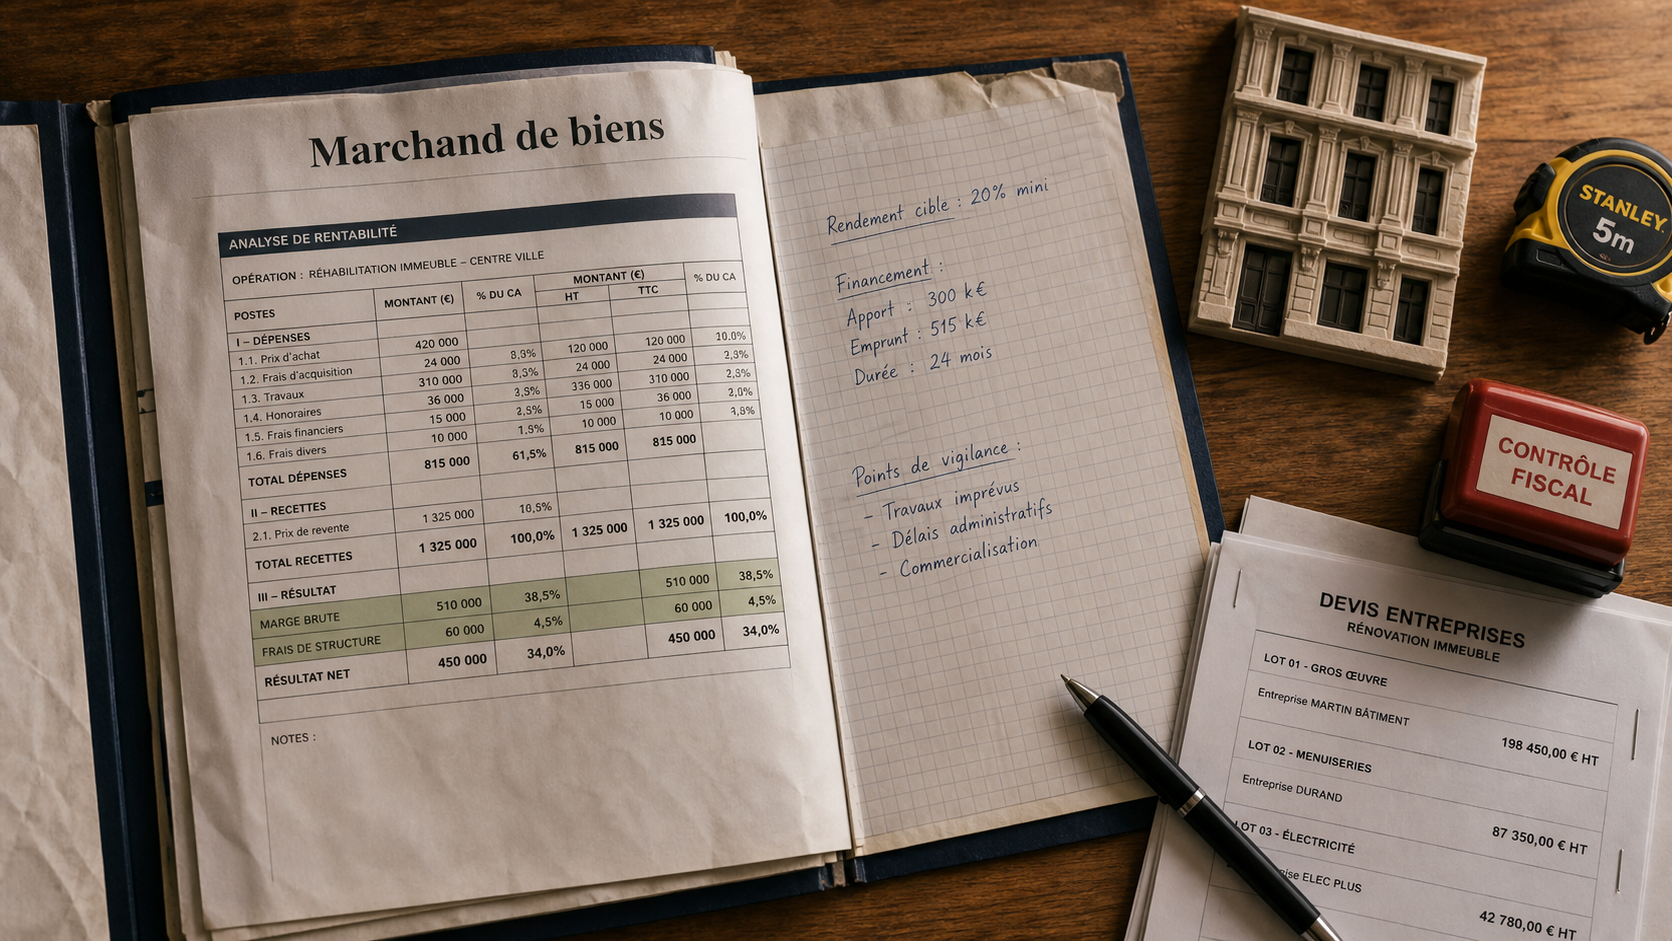 Marchand de biens
ANALYSE DE RENTABILITÉ
OPÉRATION : RÉHABILITATION IMMEUBLE – CENTRE VILLE
POSTES MONTANT (€) % DU CA MONTANT (€) HT TTC % DU CA
I – DÉPENSES
1.1. Prix d'achat 420 000 8,3% 120 000 120 000 10.0%
1.2. Frais d'acquisition 24 000 8,3% 24 000 24 000 2,3%
1.3. Travaux 310 000 3,8% 336 000 310 000 2,8%
1.4. Honoraires 36 000 2,5% 15 000 36 000 2,0%
1.5. Frais financiers 15 000 1,8% 10 000 10 000
1.6. Frais divers 10 000
TOTAL DÉPENSES 815 000 61,5% 815 000 815 000
II – RECETTES
2.1. Prix de revente 1 325 000
TOTAL RECETTES 1 325 000 100,0% 1 325 000 1 325 000 100,0%
III – RÉSULTAT
MARGE BRUTE 510 000 38,5% 510 000 38,5%
FRAIS DE STRUCTURE 60 000 4,5% 60 000 4,5%
RÉSULTAT NET 450 000 34,0% 450 000 34,0%
NOTES :
Rendement cible : 20% mini
Financement :
Apport : 300 k€
Emprunt : 515 k€
Durée : 24 mois
Points de vigilance :
- Travaux imprévus
- Délais administratifs
- Commercialisation
STANLEY
5m
CONTRÔLE
FISCAL
DEVIS ENTREPRISES
RÉNOVATION IMMEUBLE
LOT 01 - GROS ŒUVRE
Entreprise MARTIN BÂTIMENT
198 450,00 € HT
LOT 02 - MENUISERIES
Entreprise DURAND
87 350,00 € HT
LOT 03 - ÉLECTRICITÉ
ELEC PLUS
42 780,00 € HT